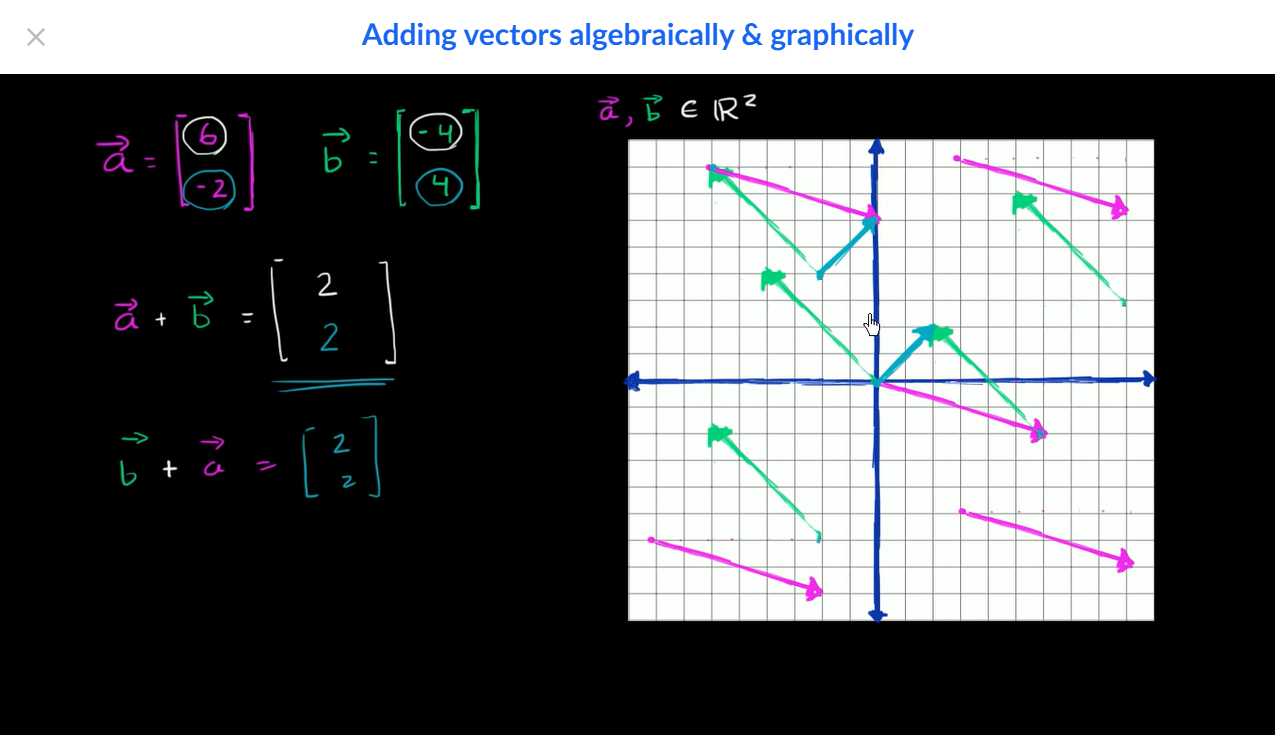 Adding vectors algebraically & graphically
a⃗ = [6 -2] b⃗ = [-4 4]
a⃗, b⃗ ∈ ℝ²
a⃗ + b⃗ = [2 2]
b⃗ + a⃗ = [2 2]